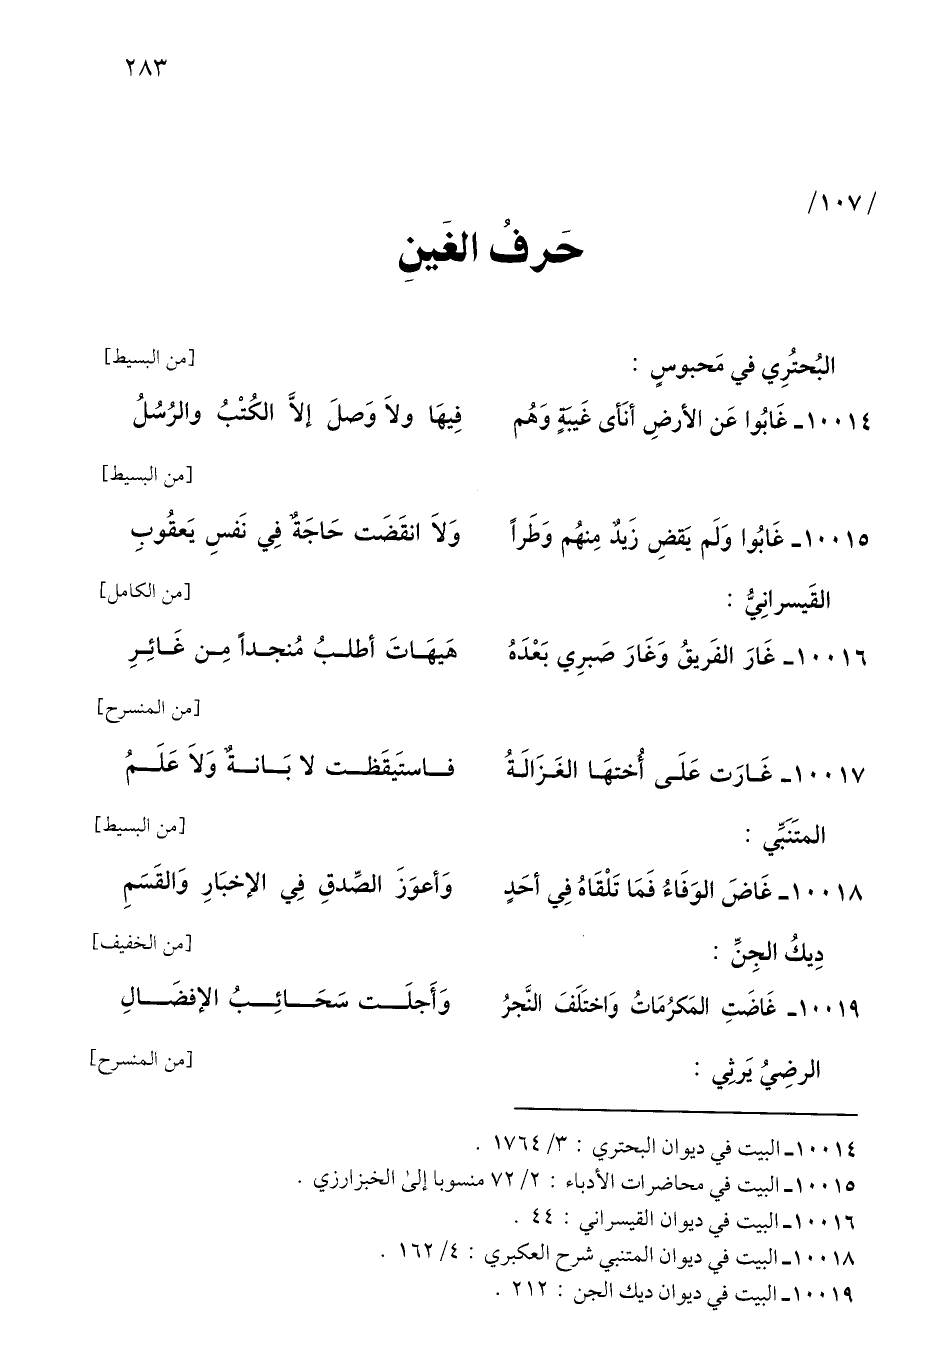 ٢٨٣
/١٠٧/
حَرفُ الغَينِ
البُحتُرِي في مَحبوسٍ : [من البسيط]
١٠٠١٤ـ غَابُوا عَن الأرضِ أنَأى غَيبَةٍ وَهُم فِيهَا ولاَ وَصلَ إلاَّ الكُتْبُ والرُسُلُ
[من البسيط]
١٠٠١٥ـ غَابُوا وَلَم يَقضِ زَيدٌ مِنهُم وَطَراً وَلاَ انقَضَت حَاجَةٌ فِي نَفسِ يَعقُوبِ
القَيسرانِيُّ : [من الكامل]
١٠٠١٦ـ غَارَ الفَريقُ وَغَارَ صَبرِي بَعْدَهُ هَيهَاتَ أطلبُ مُنجداً مِن غَائِرِ
[من المنسرح]
١٠٠١٧ـ غَارَت عَلَى أُختهَا الغَزَالَةُ فاستَيقَظت لا بَانةٌ وَلاَ عَلَمُ
المتَنَبِّي : [من البسيط]
١٠٠١٨ـ غَاضَ الوَفَاءُ فَمَا تَلْقَاهُ فِي أحَدٍ وَأعوَزَ الصِّدقِ فِي الإخبَارِ وَالقَسَمِ
دِيكُ الجِنِّ : [من الخفيف]
١٠٠١٩ـ غَاضَتِ المَكرُمَاتُ وَاختَلَفَ النَّجرُ وَأَجلَت سَحَائِبُ الإفضَالِ
الرضِيُ يَرثِي : [من المنسرح]
١٠٠١٤ـ البيت في ديوان البحتري : ٣/ ١٧٦٤ .
١٠٠١٥ـ البيت في محاضرات الأدباء : ٢/ ٧٢ منسوبا إلىٰ الخبزارزي .
١٠٠١٦ـ البيت في ديوان القيسراني : ٤٤ .
١٠٠١٨ـ البيت في ديوان المتنبي شرح العكبري : ٤/ ١٦٢ .
١٠٠١٩ـ البيت في ديوان ديك الجن : ٢١٢ .